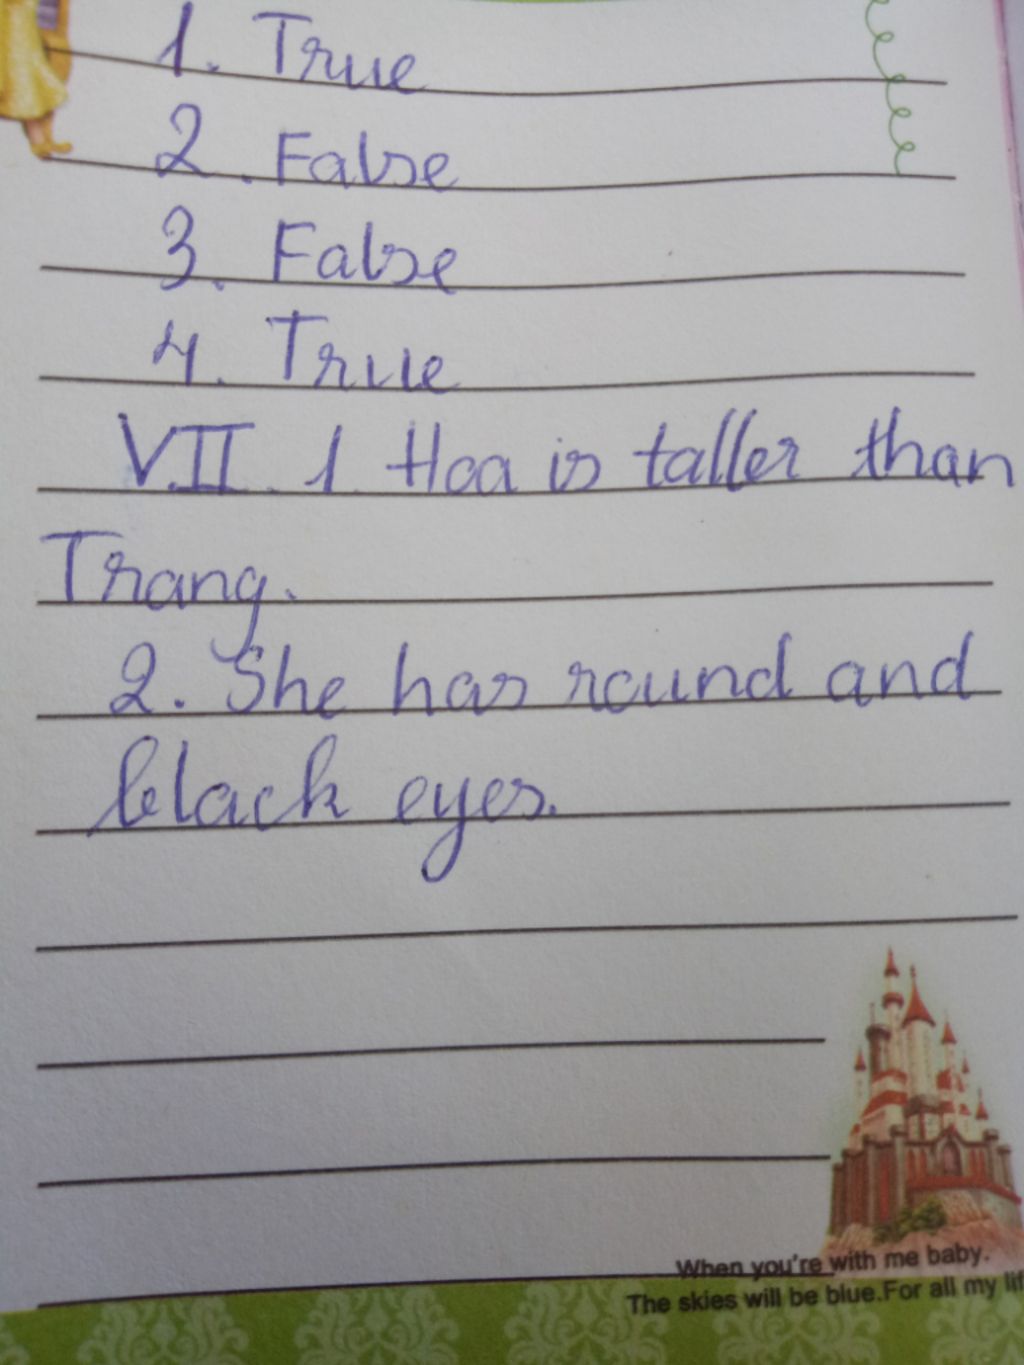 1. True
2. False
3. False
4. True
VII. 1 Hoa is taller than
Trang.
2. She has round and
black eyes.
When you're with me baby.
The skies will be blue.For all my lif